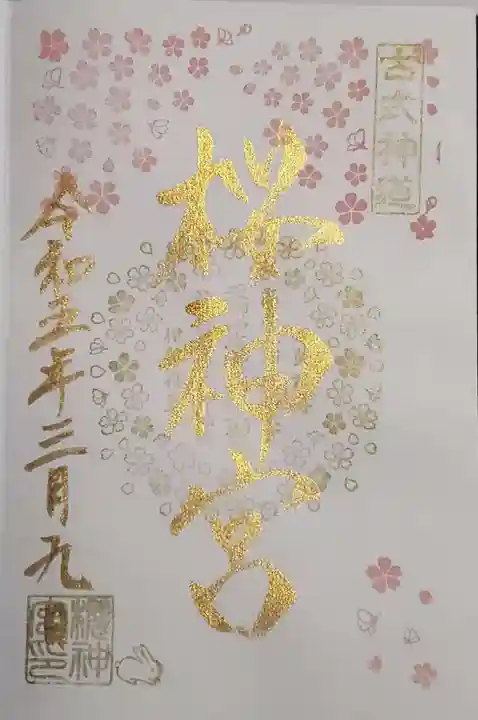 古式神道
桜神宮
令和五年三月九
櫻神宮印